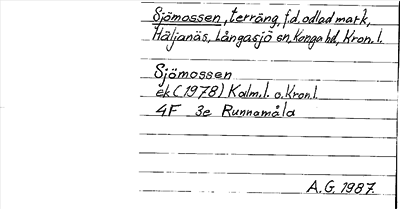 Sjömossen, terräng, f.d. odlad mark,
Häljanäs, Långasjö sn, Konga hd, Kron. l.
Sjömossen
ek (1978) Kalm.l. o. Kron.l.
4F 3e Runnamåla
A.G. 1987.